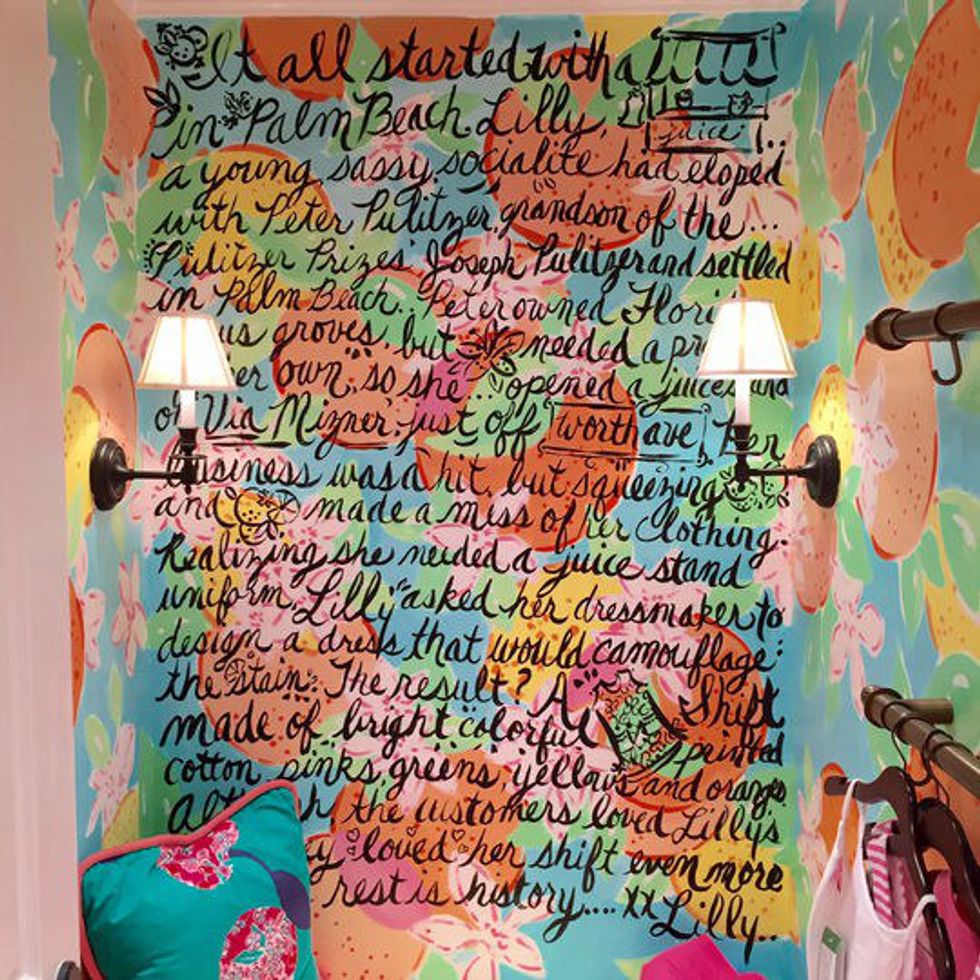 It all started with a
in Palm Beach Lilly, juice
a young sassy socialite had eloped
with Peter Pulitzer, grandson of the...
Pulitzer Prizes' Joseph Pulitzer and settled
in Palm Beach.. Peter owned
groves, but needed a
own, so she opened a juice
Via Mizner, just off worth ave
business was a hit, but squeezing
and made a mess of her clothing.
Realizing she needed a juice stand
uniform, Lilly asked her dressmaker to
design a dress that would camouflage
the stain. The result? A Shift
made of bright colorful printed
cotton pinks, greens, yellows and
the customers loved Lilly's
loved her shift even more
rest is history.... xx Lilly..